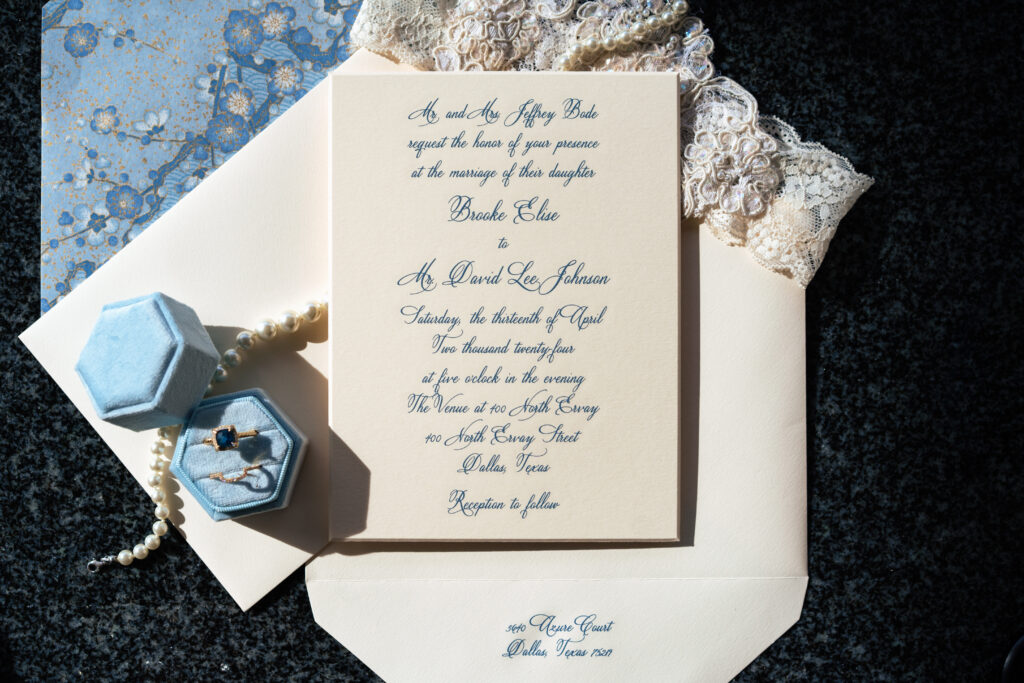 Mr. and Mrs. Jeffrey Bode
request the honor of your presence
at the marriage of their daughter
Brooke Elise
to
Mr. David Lee Johnson
Saturday, the thirteenth of April
Two thousand twenty-four
at five o'clock in the evening
The Venue at 400 North Ervay
400 North Ervay Street
Dallas, Texas
Reception to follow
Azure Court
Dallas, Texas